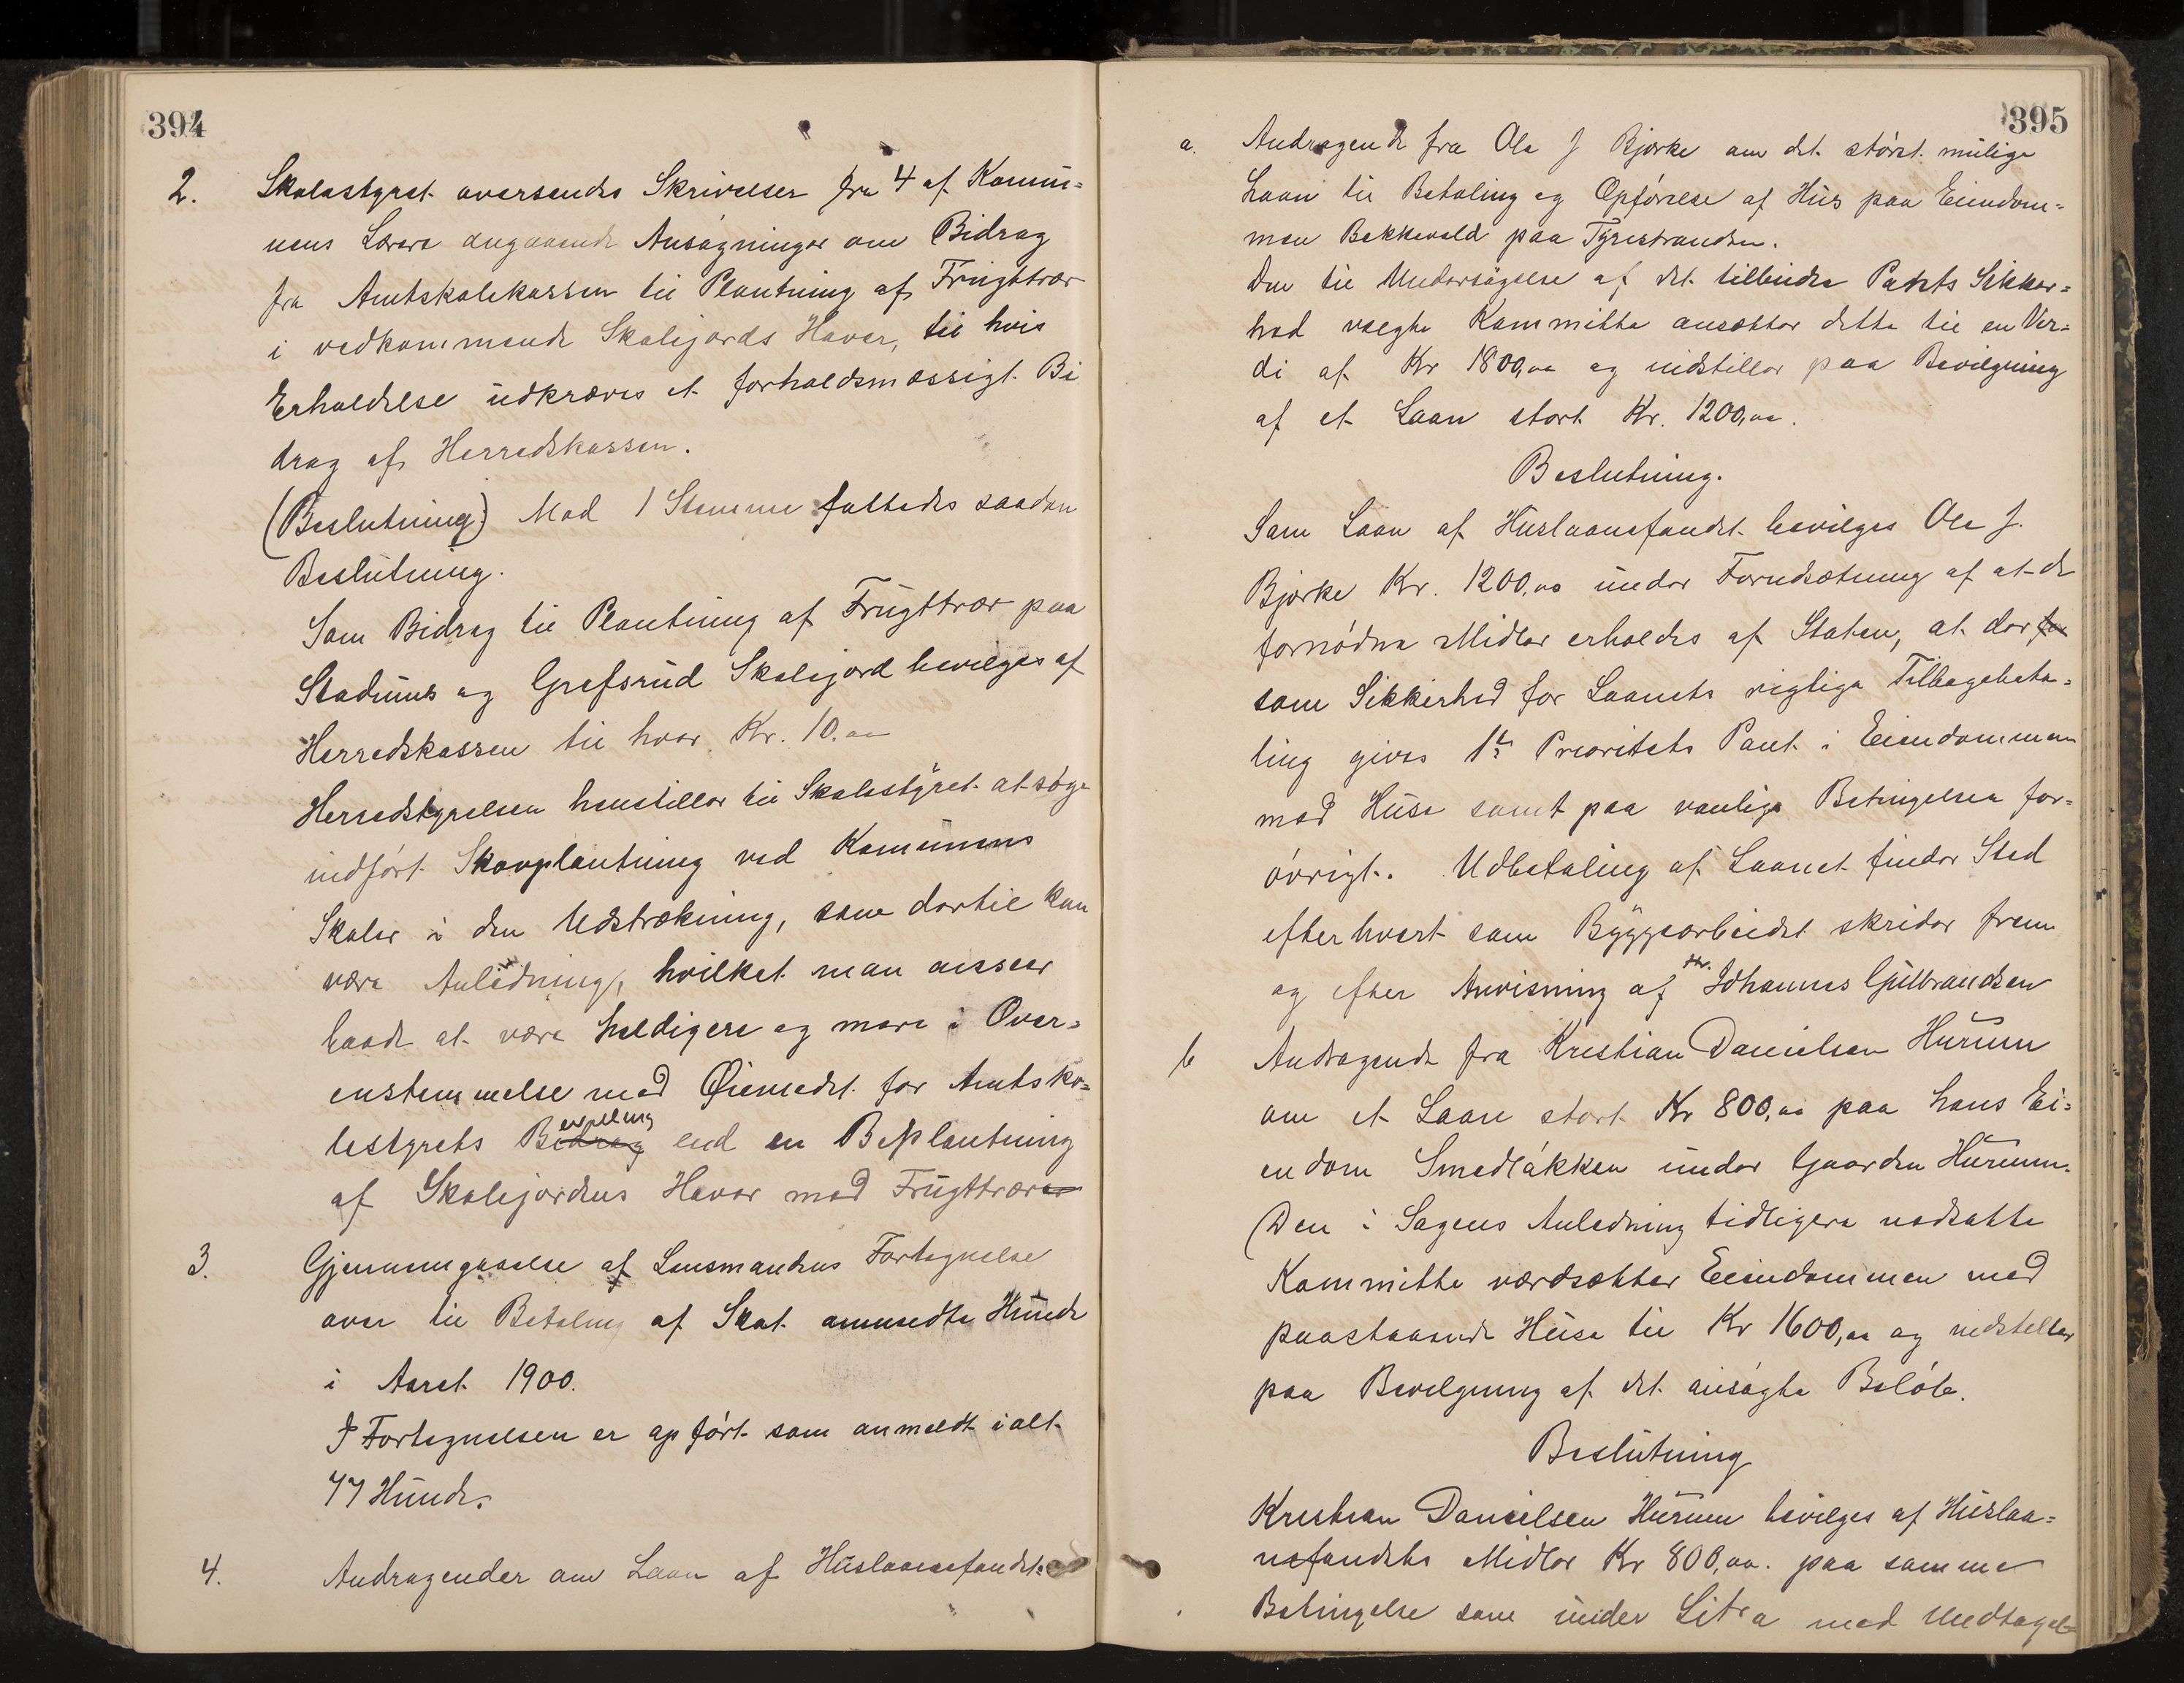 394
2. Skolestyret oversendes Skrivelser fra 4 af Komu=
nens Lærere angaaende Ansøgninger om Bidrag
fra Amtskolekassen til Plantning af Frugttrær
i vedkommende Skolejords Haver, til hvis
Erholdelse udkræves et forholdsmæssigt Bi
drag af Herredskassen.
(Beslutning) Mod 1 Stemme fattedes saadan
Beslutning.
Som Bidrag til Plantning af Frugttrær paa
Stadums og Grefsrud Skolejord bevilges af
Herredskassen til hver Kr. 10.00
Herredstyrelsen henstiller til Skolestyret at søge
indført Skovplantning ved Komunens
Skoler i den Udstrækning, som dertil kan
være Anledning, hvilket man ansser
baade at være heldigere og mere i Over=
enstemmelse med Øiemedet for Amtsko=
lestyrets Bidrag evilling end en Beplantning
af Skolejordens Haver med Frugttrærer
3. Gjennemgaaelse af Lensmandens Fortegnelse
over til Betaling af Skat anmeldte Hunde
i Aaret 1900.
I Fortegnelsen er opført som anmeldt ialt
77 Hunde.
4. Andragender om Laan af Huslaanefondet.
395
a. Andragende fra Ole J Bjørke om det størst mulige
Laan til Betaling og Opførelse af Hus paa Eiendom=
men Bekkevold paa Tyristranden.
Den til Undersøgelse af det tilbudte Pants Sikker=
hed valgte Kommitte ansætter dette til en Ver=
di af Kr 1800,00 og indstiller paa Bevilgning
af et Laan stort Kr. 1200,00.
Beslutning.
Som Laan af Huslaanefondet bevilges Ole J.
Bjørke Kr. 1200,00 under Forudsætning af at de
fornødne Midler erholdes af Staten, at der for
som Sikkerhed for Laanets rigtige Tilbagebeta=
ling gives 1ste Prioritets Pant i Eiendommen
med Huse samt paa vanlige Betingelser for=
øvrigt. Udbetaling af Laanet finder Sted
efterhvert som Byggearbeidet skrider frem
og efter Anvisning af hr. Johannes Gulbrandsen
b Andragende fra Kristian Danielsen Hurum
om et Laan stort Kr 800,00 paa hans Ei=
endom Smedløkken under Gaarden Hurum.
Den i Sagens Anledning tidligere nedsatte
Kommitte værdsætter Eiendommen med
paastaaende Huse til Kr 1600,00 og indstiller
paa Bevilgning af det ansøgte Beløb.
Beslutning
Kristian Danielsen Hurum bevilges af Huslaa=
nefondets Midler Kr 800,00. paa samme
Betingelse som under Litra med Undtagelse